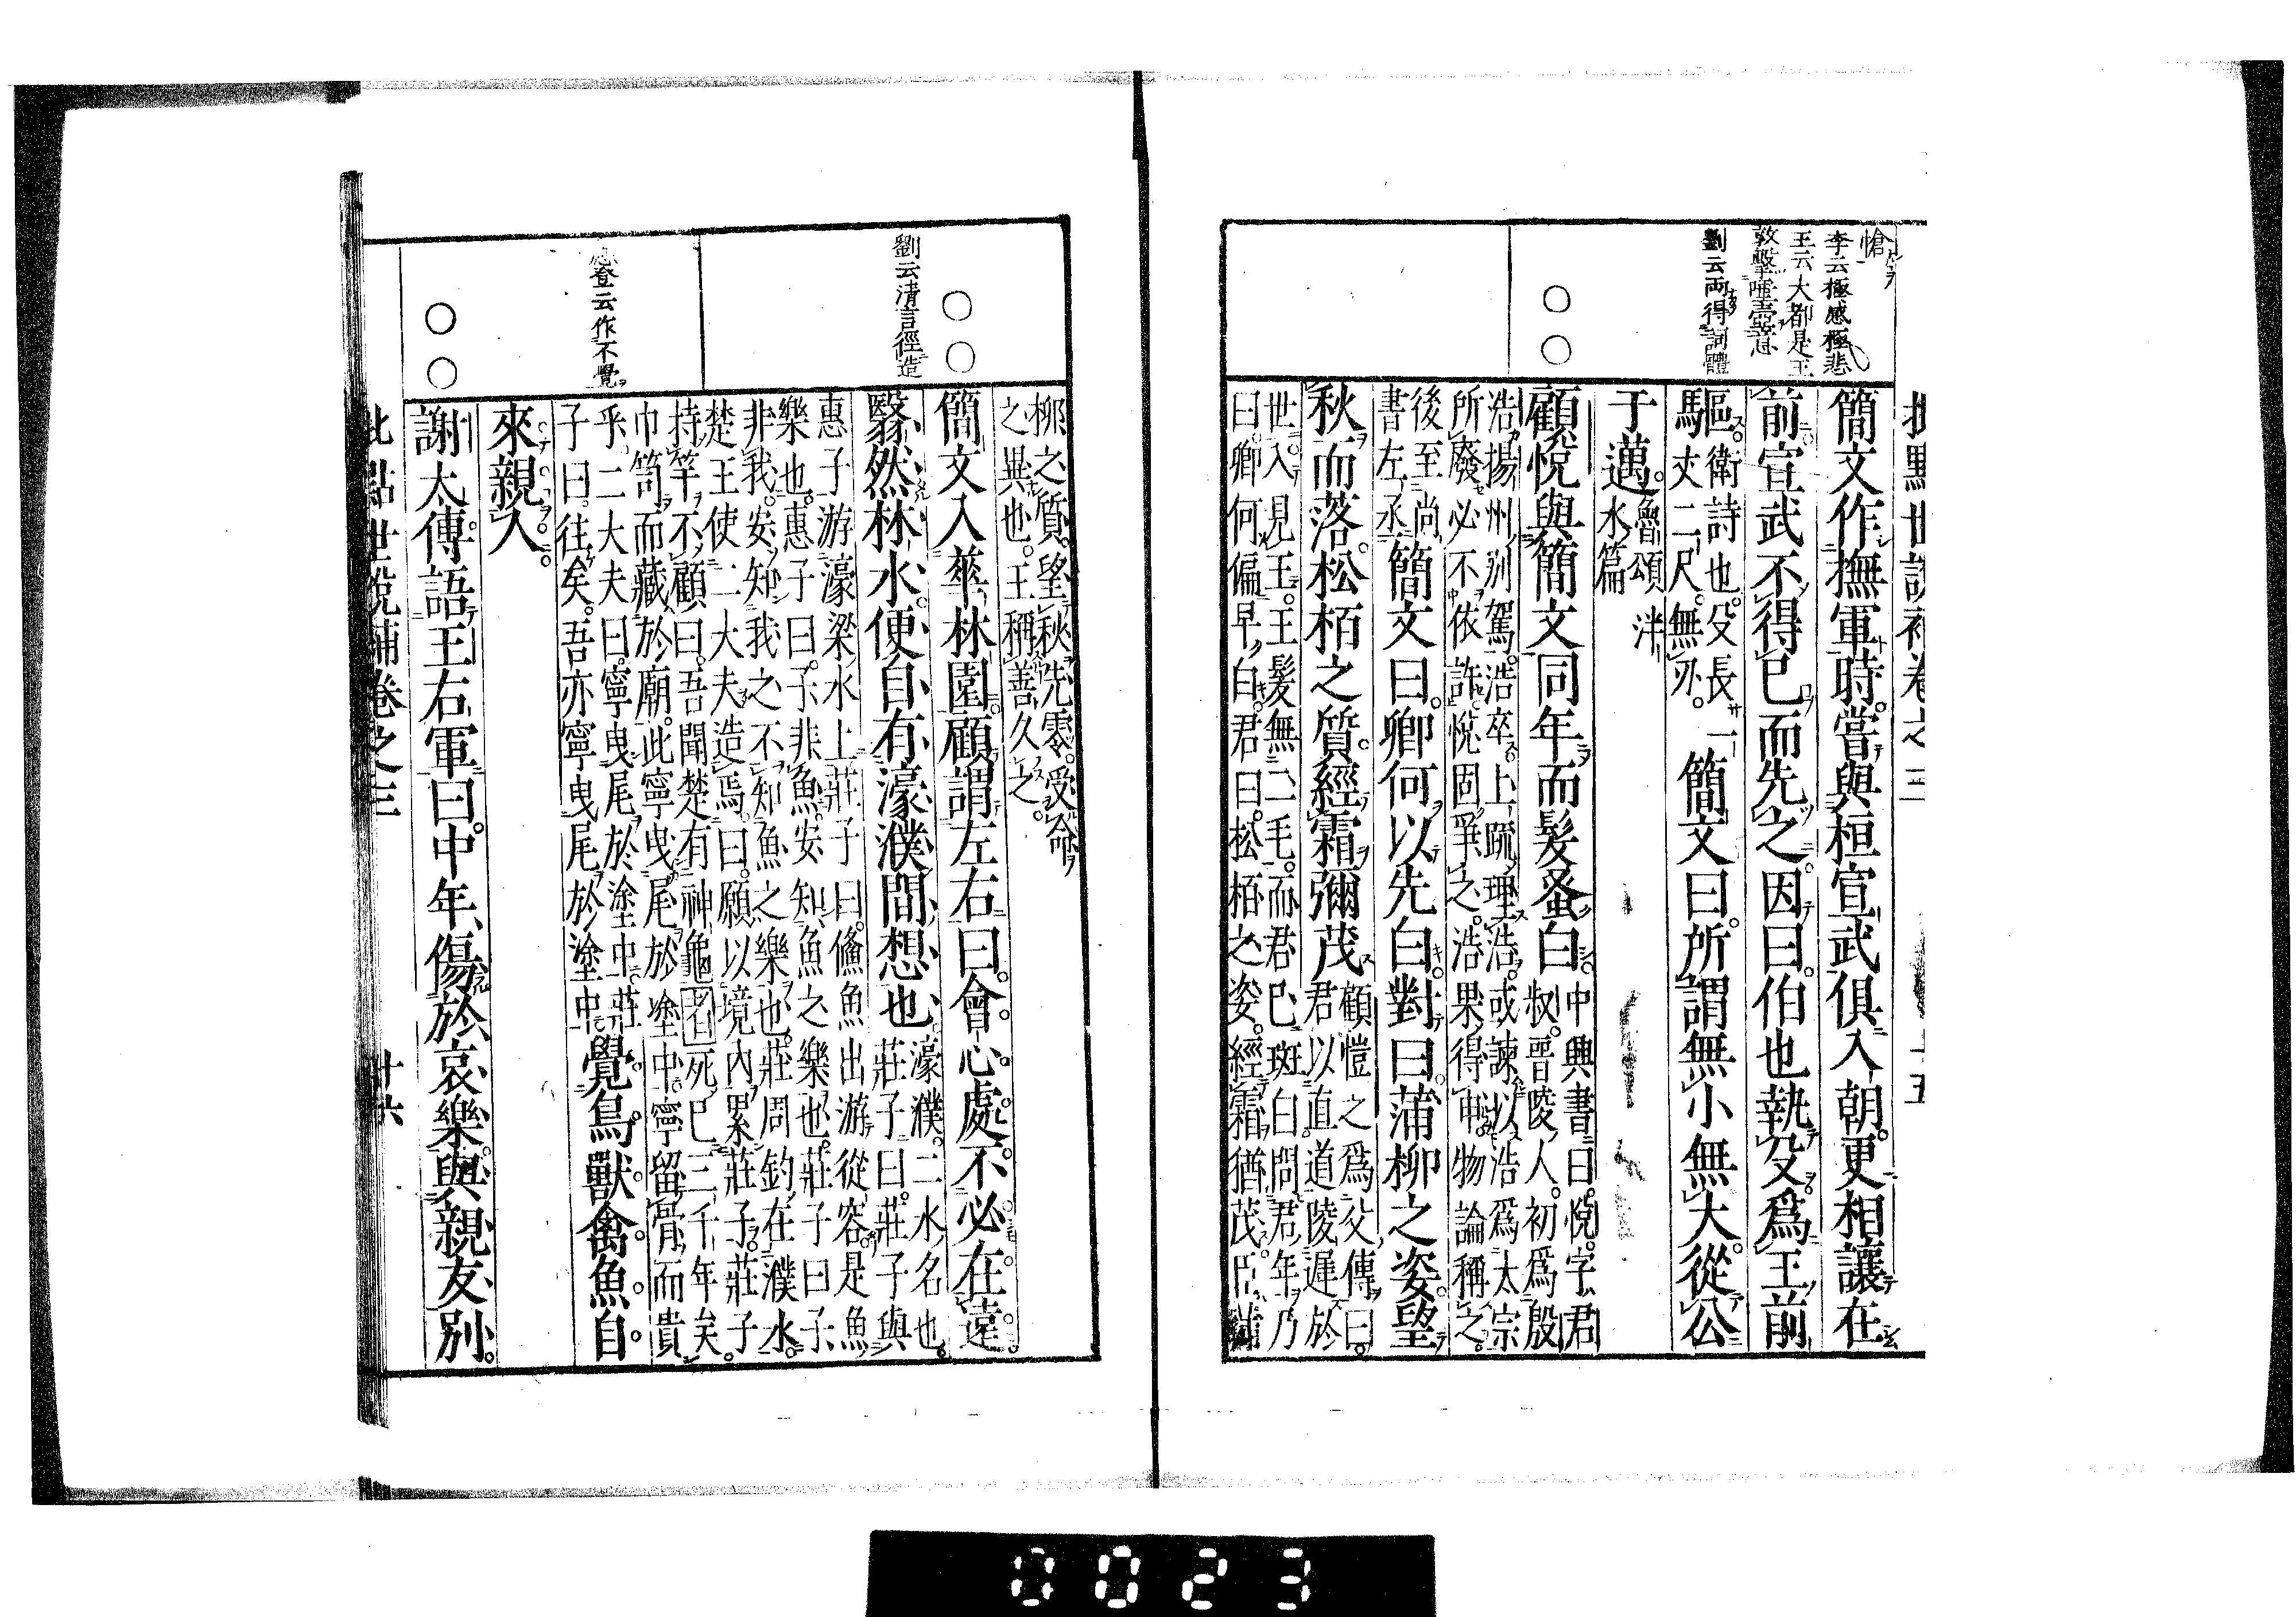 批點世說補卷之三
十五
愴
李云極感極悲
王云大都是王
敦擊唾壺意
劉云兩得詞體
簡文作撫軍時嘗與桓宣武俱入朝更相讓在
前宣武不得已而先之因曰伯也執殳爲王前
驅
衛詩也殳長一
丈二尺無刃
簡文曰所謂無小無大從公
于邁
魯頌泮
水篇
顧悅與簡文同年而髮蚤白
中興書曰悅字君
叔晉陵人初爲殷
浩揚州別駕浩卒上疏理浩或諫以浩爲太宗
所廢必不依許悅固爭之浩果得申物論稱之
後至尚
書左丞
簡文曰卿何以先白對曰蒲柳之姿望
秋而落松栢之質經霜彌茂
顧愷之爲父傳曰
君以直道陵遲於
世入見王王髮無二毛而君已斑白問君年乃
曰卿何偏早白君曰松栢之姿經霜猶茂臣蒲
柳之質望秋先零受命
之異也王稱善久之
劉云清言徑造
簡文入華林園顧謂左右曰會心處不必在遠
翳然林水便自有濠濮間想也
濠濮二水名也
莊子曰莊子與
惠子游濠梁水上莊子曰儵魚出游從容是魚
樂也惠子曰子非魚安知魚之樂也莊子曰子
非我安知我之不知魚之樂也莊周釣在濮水
楚王使二大夫造焉曰願以境內累莊子莊子
持竿不顧曰吾聞楚有神龜者死已三千年矣
巾笥而藏於廟此寧曳尾於塗中寧留骨而貴
乎二大夫曰寧曳尾於塗中莊
子曰往矣吾亦寧曳尾於塗中
登云作不覺
覺鳥獸禽魚自
來親人
謝太傅語王右軍曰中年傷於哀樂與親友別
批點世說補卷之三
十六
0023